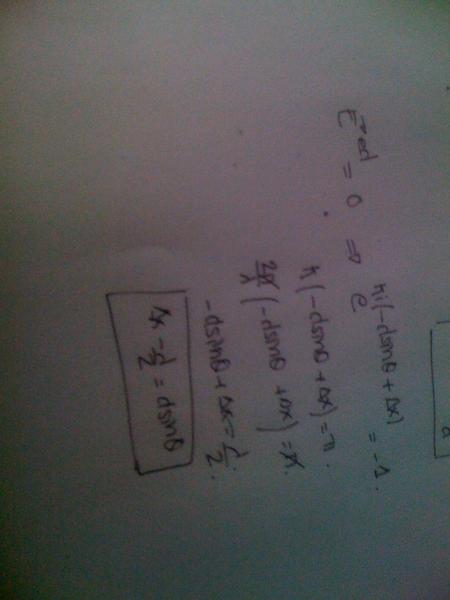 E^red = 0 ⇒ e^ik(-dsinθ + Δx) = -1.
k(-dsinθ + Δx) = π.
2π/λ (-dsinθ + Δx) = π.
-dsinθ + Δx = λ/2.
Δx - λ/2 = dsinθ